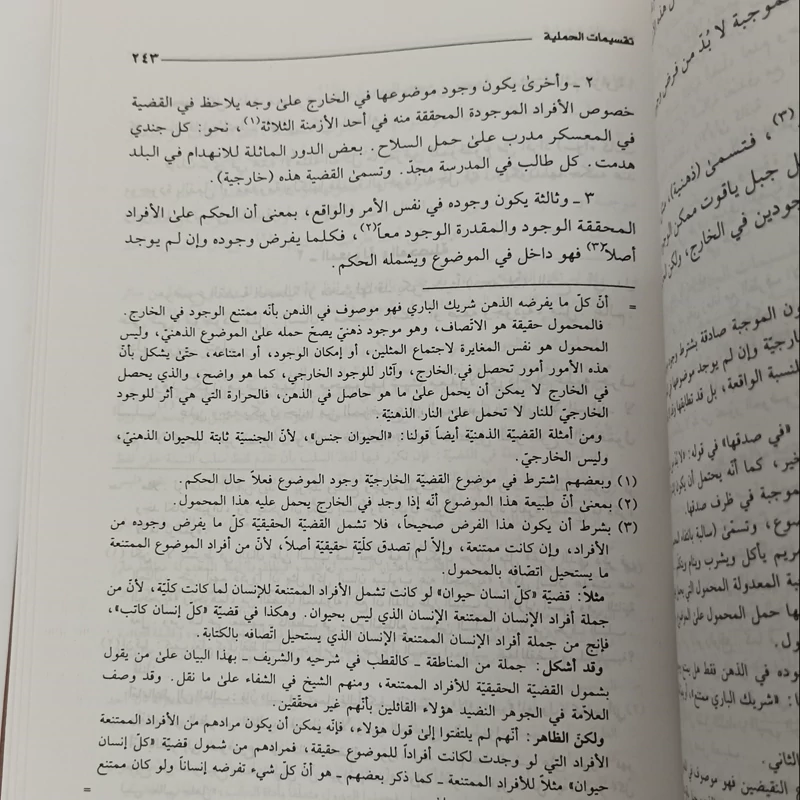 تقسيمات الحملية ٢٤٣
٢ ـ وأخرىٰ يكون وجود موضوعها في الخارج علىٰ وجه يلاحظ في القضية
خصوص الأفراد الموجودة المحققة منه في أحد الأزمنة الثلاثة(١)، نحو: كل جندي
في المعسكر مدرب علىٰ حمل السلاح. بعض الدور المائلة للانهدام في البلد
هدمت. كل طالب في المدرسة مجدّ. وتسمىٰ القضية هذه (خارجية).
٣ ـ وثالثة يكون وجوده في نفس الأمر والواقع، بمعنى أن الحكم علىٰ الأفراد
المحققة الوجود والمقدرة الوجود معاً(٢)، فكلما يفرض وجوده وإن لم يوجد
أصلاً(٣) فهو داخل في الموضوع ويشمله الحكم.
= أنّ كلّ ما يفرضه الذهن شريك الباري فهو موصوف في الذهن بأنّه ممتنع الوجود في الخارج.
فالمحمول حقيقة هو الاتّصاف، وهو موجود ذهنيّ يصحّ حمله علىٰ الموضوع الذهنيّ، وليس
المحمول هو نفس المغايرة لاجتماع المثلين، أو إمكان الوجود، أو امتناعه، حتّىٰ يشكل بأنّ
هذه الأمور أمور تحصل في الخارج، وآثار للوجود الخارجي، كما هو واضح، والذي يحصل
في الخارج لا يمكن أن يحمل علىٰ ما هو حاصل في الذهن، فالحرارة التي هي أثر للوجود
الخارجيّ للنار لا تحمل علىٰ النار الذهنيّة.
ومن أمثلة القضيّة الذهنيّة أيضاً قولنا: «الحيوان جنس»، لأنّ الجنسيّة ثابتة للحيوان الذهنيّ،
وليس الخارجيّ.
(١) وبعضهم اشترط في موضوع القضيّة الخارجيّة وجود الموضوع فعلاً حال الحكم.
(٢) بمعنىٰ أنّ طبيعة هذا الموضوع أنّه إذا وجد في الخارج يحمل عليه هذا المحمول.
(٣) بشرط أن يكون هذا الفرض صحيحاً، فلا تشمل القضيّة الحقيقيّة كلّ ما يفرض وجوده من
الأفراد، وإن كانت ممتنعة، وإلاّ لم تصدق كلّيّة حقيقيّة أصلاً، لأنّ من أفراد الموضوع الممتنعة
ما يستحيل اتصّافه بالمحمول.
مثلاً: قضيّة «كلّ انسان حيوان» لو كانت تشمل الأفراد الممتنعة للإنسان لما كانت كلّيّة، لأنّ من
جملة أفراد الإنسان الممتنعة الإنسان الذي ليس بحيوان. وهكذا في قضيّة «كلّ إنسان كاتب»،
فإنج من جملة أفراد الإنسان الممتنعة الإنسان الذي يستحيل اتّصافه بالكتابة.
وقد أشكل: جملة من المناطقة ـ كالقطب في شرحيه والشريف ـ بهذا البيان علىٰ من يقول
بشمول القضيّة الحقيقيّة للأفراد الممتنعة، ومنهم الشيخ في الشفاء علىٰ ما نقل. وقد وصف
العلاّمة في الجوهر النضيد هؤلاء القائلين بأنّهم غير محقّقين.
ولكنّ الظاهر: أنّهم لم يلتفتوا إلىٰ قول هؤلاء، فإنّه يمكن أن يكون مرادهم من الأفراد الممتنعة
الأفراد التي لو وجدت لكانت أفراداً للموضوع حقيقة، فمرادهم من شمول قضيّة «كلّ إنسان
حيوان» مثلاً للأفراد الممتنعة ـ كما ذكر بعضهم ـ هو أنّ كلّ شيء تفرضه إنساناً ولو كان ممتنع
=